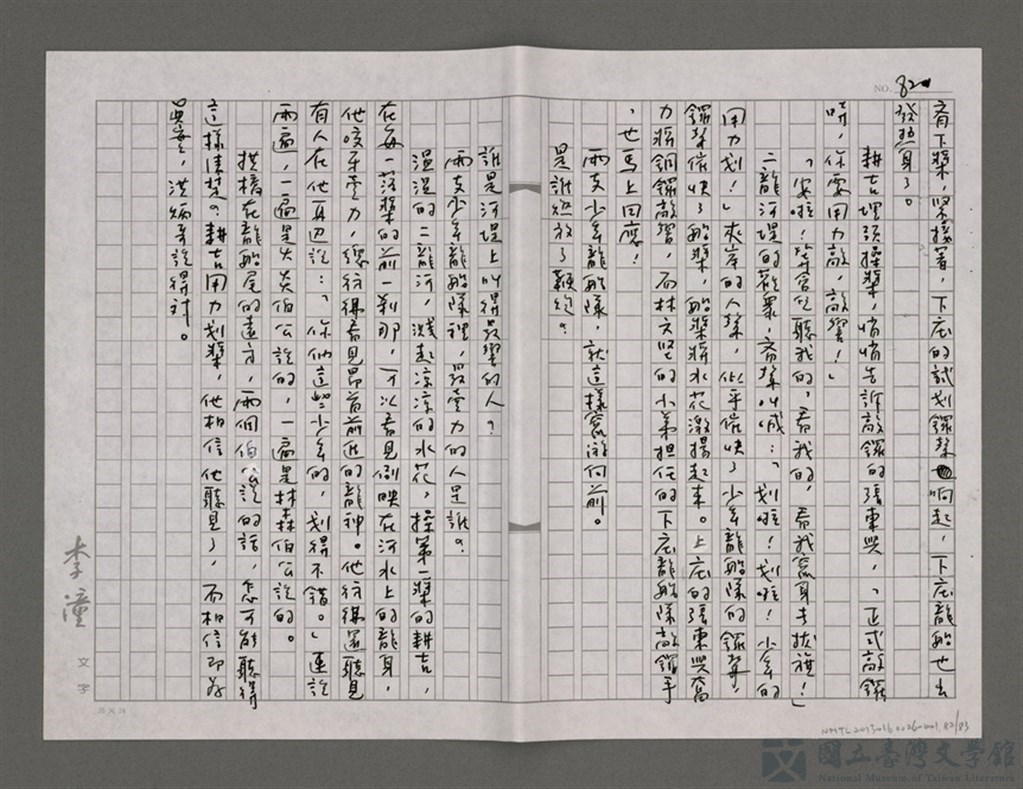 NO. 82
齊下槳，緊接著，下庄的試划鑼聲也响起，下庄龍船也去
發熱身了。
耕吉埋頭操槳，悄悄告訴敲鑼的張東興，「正式敲鑼
時，你要用力敲，敲響！」
「安啦！皆會記聽我的，看我的，看我窩身去拔旗！」
二龍河堤的觀衆，齊聲叫喊：「划啦！划啦！少年的
用力划！」夾岸的人聲，似乎催快了少年龍船隊的鑼聲，
鑼聲催快了船槳，船槳將水花激揚起來。上庄的張東興奮
力將銅鑼敲響，而林文堅的小弟担任的下庄龍船隊敲鑼手
，也馬上回應！
兩支少年龍船隊，就這樣向前。
是誰燃放了鞭炮？
誰是河堤上叫得最響的人？
兩支少年龍船隊裡，最賣力的人是誰？
溫溫的二龍河，濺起涼涼的水花，操第一槳的耕吉，
在每一落槳的前一剎那，可以看見倒映在河水上的龍身，
他咬牙賣力，彷彿看見昂首前進的龍神。他彷彿還聽見
有人在他耳邊說：「你們這些少年的，划得不錯。」連說
兩遍，一遍是火炎伯公說的，一遍是林森伯公說的。
拱橋在龍船尾的遠方，兩個伯公說的話，怎可能聽得
這樣清楚？耕吉用力划槳，他相信他聽見了，而相信即為
真實，洪炳哥說得對。
李潼
文字
25 X 24
NMTL20130160026-001.82/83
國立臺灣文學館
National Museum of Taiwan Literature